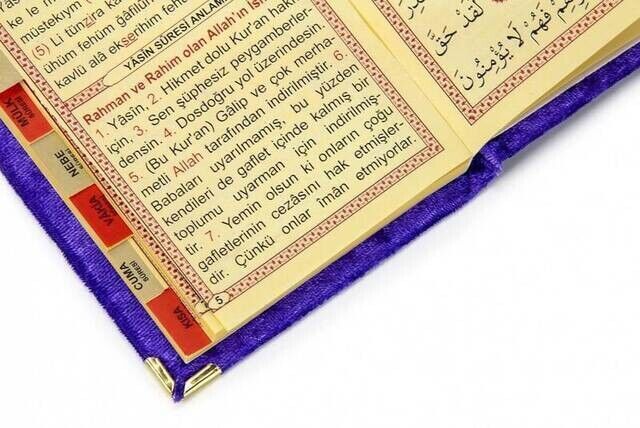 ke le m
müstekıym
(5) Li tünzira ka
ühüm fehüm ğâfilûn
kavlü alâ ekserihim fehü
YASİN SÛRESİ ANLAM
Rahman ve Rahim olan Allah'ın is
1. Yâsîn, 2. Hikmet dolu Kur'an hakkı
için, 3. Sen şüphesiz peygamberler
densin. 4. Dosdoğru yol üzerindesin.
5. (Bu Kur'an) Gâlip ve çok merha-
metli Allah tarafından indirilmiştir. 6.
Babaları uyarılmamış, bu yüzden
kendileri de gaflet içinde kalmış bir
toplumu uyarman için indirilmiş-
tir. 7. Yemin olsun ki onların çoğu
gafletlerinin cezâsını hak etmişler-
dir. Çünkü onlar îmân etmiyorlar.
5
لَقَدْ حَقَّ
فَهُمْ لَا يُؤْمِنُونَ
MÜLK
SÛRESİ
NEBE
VAKIA
CUMA
SÛRESİ
KISA